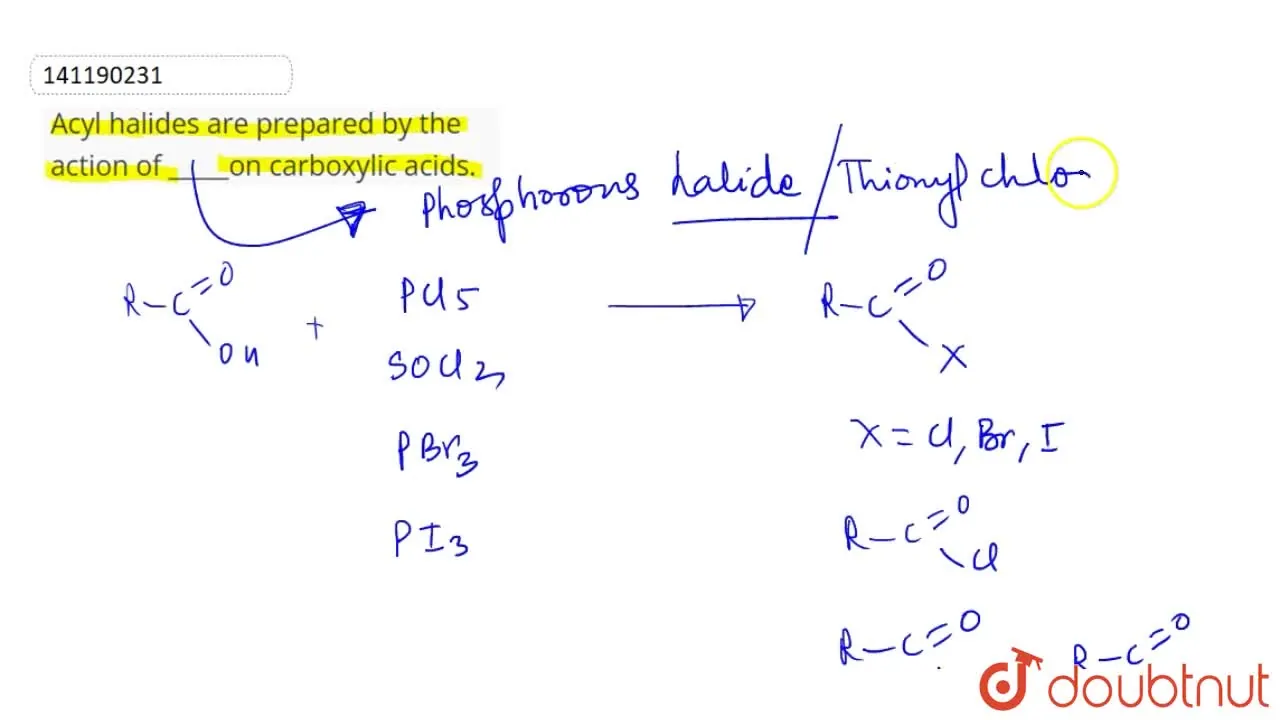 141190231
Acyl halides are prepared by the
action of _____ on carboxylic acids.
Phosphorous halide / Thionyl chlo
R-C=O
OH
+
PCl5
SOCl2
PBr3
PI3
R-C=O
X
X = Cl, Br, I
R-C=O
Cl
R-C=O
R-C=O
doubtnut